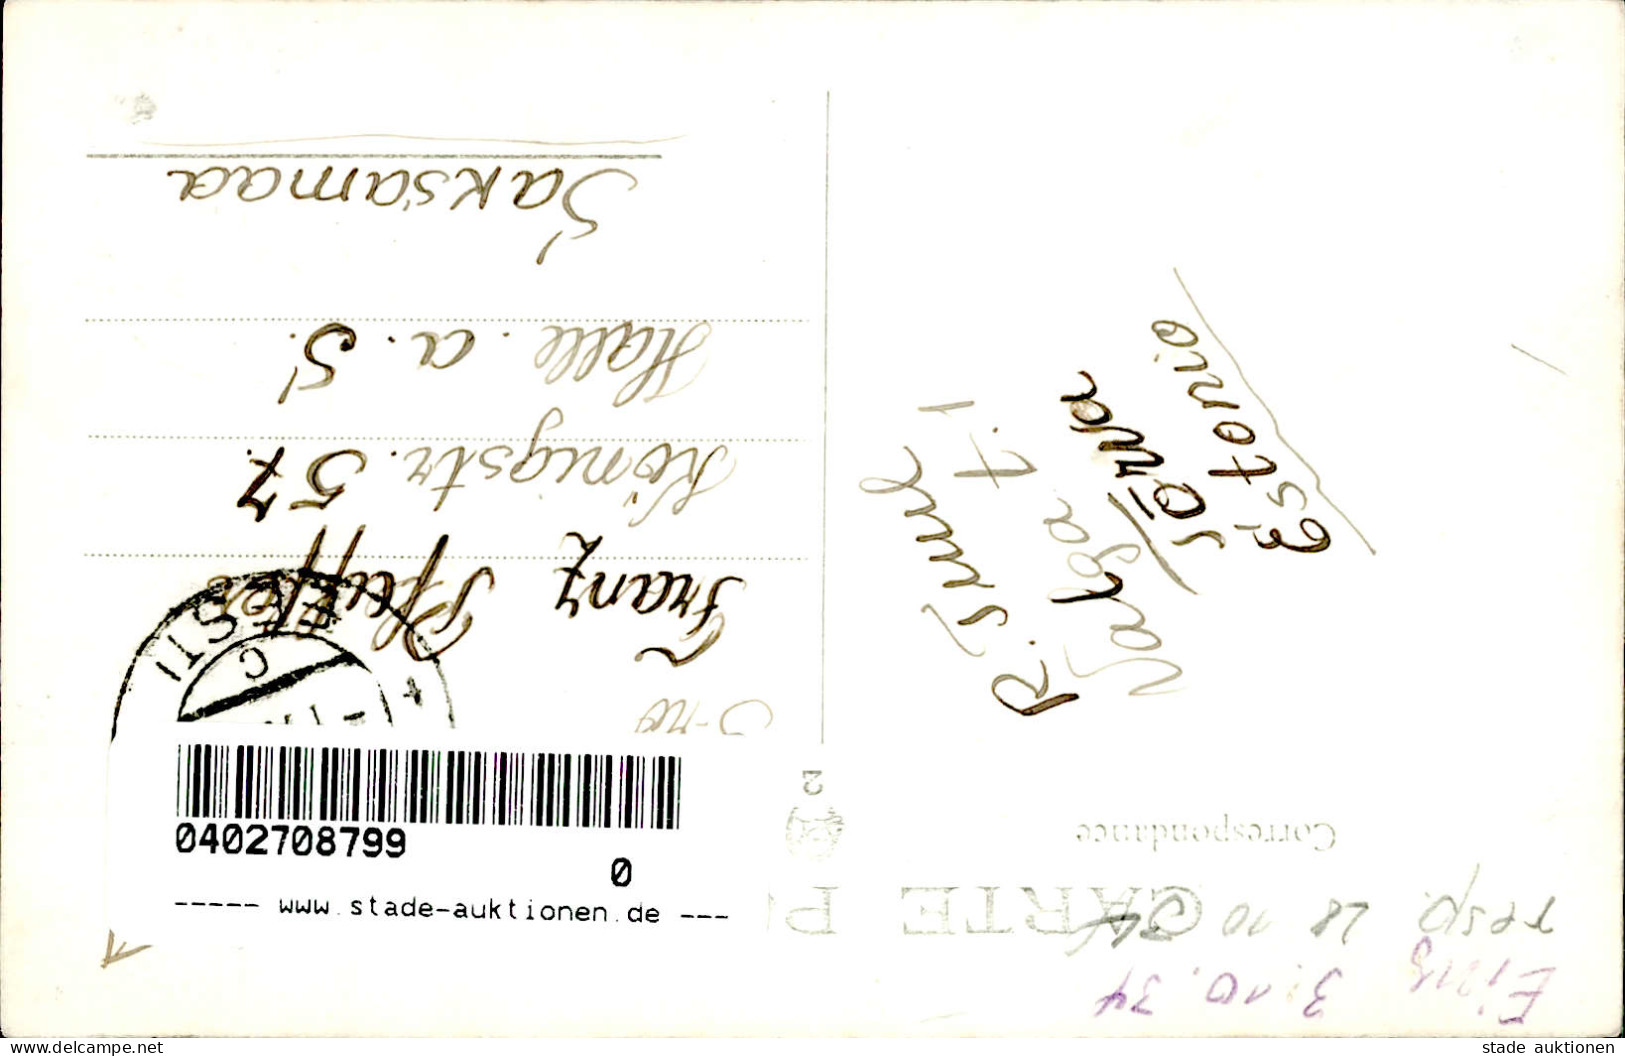 CARTE P
Correspondance
2
Franz Pfeiffer
Königstr. 57.
Halle. a. S.
Saksamaa
Valga t. 1
Sõrva
Estonio
resp. 28 10 34
3.10.34
EESTI
C
0402708799
0
----- www.stade-auktionen.de ---
www.delcampe.net
stade auktionen